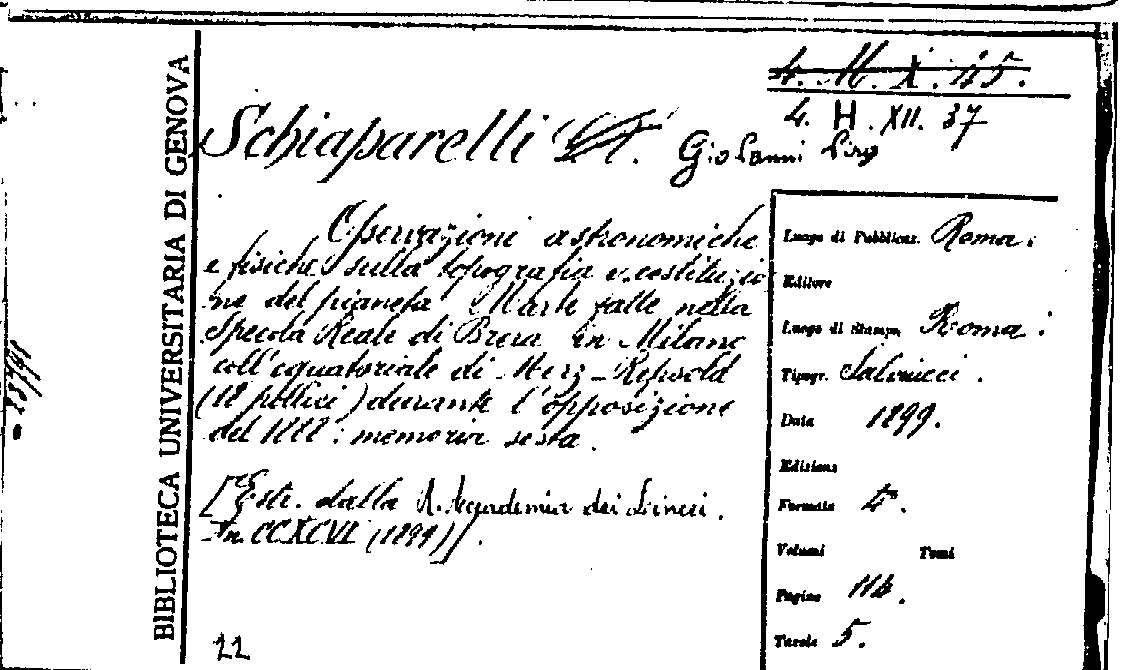 BIBLIOTECA UNIVERSITARIA DI GENOVA
4. M. X. 45.
4. H. XII. 37
Schiaparelli Giovanni Virg
Osservazioni astronomiche
e fisiche sulla topografia e costituzio
ne del pianeta Marte fatte nella
Specola Reale di Brera in Milano
coll'equatoriale di Merz-Repsold
(18 pollici) durante l'opposizione
del 1888: memoria sesta.
[Estr. dalla R. Accademia dei Lincei.
An. CCXCVI (1899)].
22
Luogo di Pubblicaz. Roma.
Editore
Luogo di Stampa Roma.
Tipogr. Salviucci.
Data 1899.
Edizione
Formato 4°.
Volumi Tomi
Pagine 114.
Tavole 5.